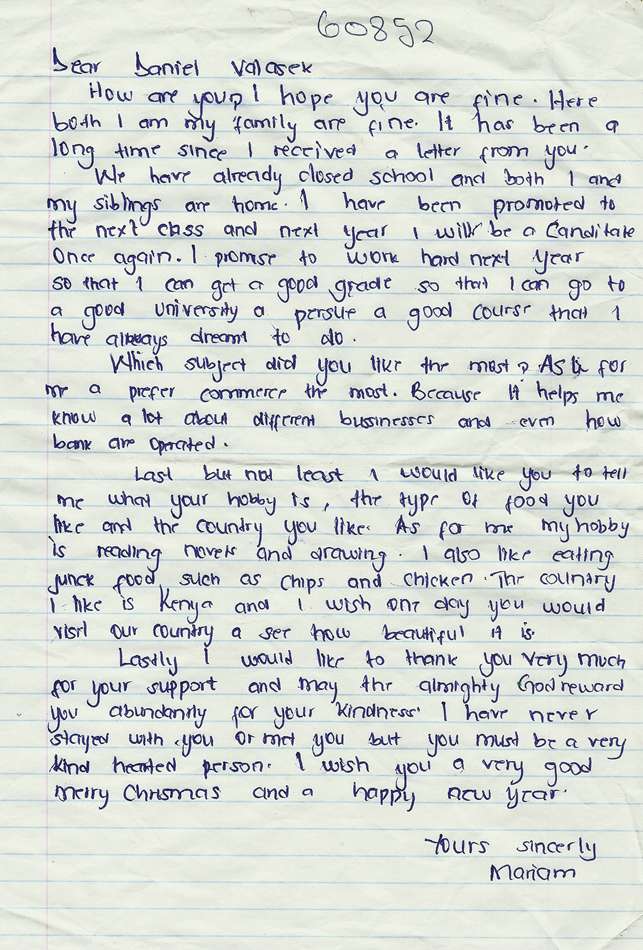 60892
Dear Daniel Valasek
How are you? I hope you are fine. Here
both I am my family are fine. It has been a
long time since I received a letter from you.
We have already closed school and both I and
my siblings are home. I have been promoted to
the next class and next year I will be a Canditate
Once again. I promise to work hard next year
so that I can get a good grade so that I can go to
a good university a persue a good course that I
have always dreamt to do.
Which subject did you like the most? As for
me a prefer commerce the most. Because it helps me
know a lot about different businesses and even how
bank are operated.
Last but not least I would like you to tell
me what your hobby is, the type of food you
like and the country you like. As for me my hobby
is reading novels and drawing. I also like eating
junck food such as chips and chicken. The country
I like is Kenya and I wish one day you would
visit our country a see how beautiful it is.
Lastly I would like to thank you very much
for your support and may the almighty God reward
you abundantly for your kindness. I have never
stayed with you or met you but you must be a very
kind hearted person. I wish you a very good
merry Chrismas and a happy new year.
Yours sincerly
Mariam